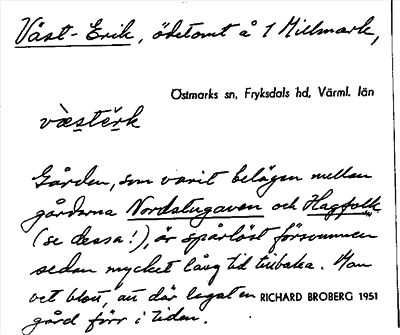 Väst-Erik, ödetomt å 1 Millmark,
Östmarks sn, Fryksdals hd, Värml. län
væ̀stérk
Gården, som varit belägen mellan
gårdarna Nordstugaven och Hagfolk
(se dessa!), är spårlöst försvunnen
sedan mycket lång tid tillbaka. Man
vet blott, att där legat en RICHARD BROBERG 1951
gård förr i tiden.